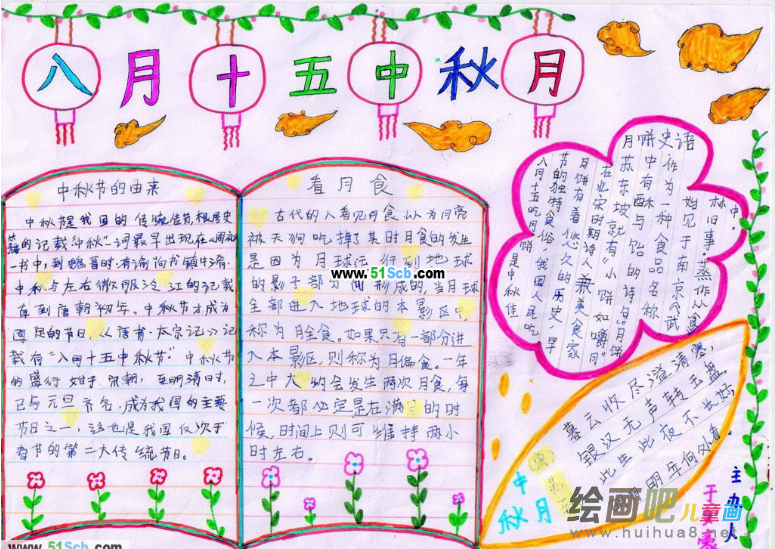 八月十五中秋月
中秋节的由来
中秋节是我国的传统佳节,根据史
籍的记载“中秋”一词最早出现在《周礼》
一书中,到魏晋时,有“谕尚书镇牛渚,
中秋夕与左右微服泛江”的记载
直到唐朝初年,中秋节才成为
固定的节日。《唐书·太宗记》记
载有“八月十五中秋节”中秋节
的盛行始于宋朝,至明清时,
已与元旦齐名,成为我国的主要
节日之一,这也是我国仅次于
春节的第二大传统节日。
看月食
古代的人看见月食以为月亮
被天狗吃掉了其时月食的发生
是因为月球运行到地球
的影子部分而形成的,当月球
全部进入地球的本影区中
称为月全食。如果只有一部分进
入本影区,则称为月偏食。一年
之中大约会发生两次月食,每
一次都必定是在满月的时
候,时间上则可维持两小
时左右。
月饼史话
月饼作为一种食品名称
中有酥与饴的诗句
苏东坡就有“小饼如嚼月
在北宋时期诗人兼美食家
月饼有着悠久的历史,早
节的独特食俗,我国人民吃
八月十五吃月饼是中秋佳
暮云收尽溢清寒,
银汉无声转玉盘
此生此夜不长好
明月明年何处看。
中秋月
主办人
www.51Scb.com
www.51Scb.com
绘画吧儿童画
www.huihua8.net